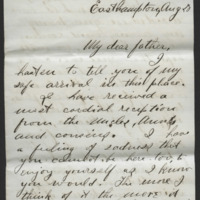 Easthampton, Aug 2
My dear father,
I
hasten to tell you of my
safe arrival in this place.
I have received a
most cordial reception
from the Uncles, Aunts
and cousins. I have
a feeling of sadness that
you cannot be here too, to
enjoy yourself as I know
you would. The more I
think of it the more